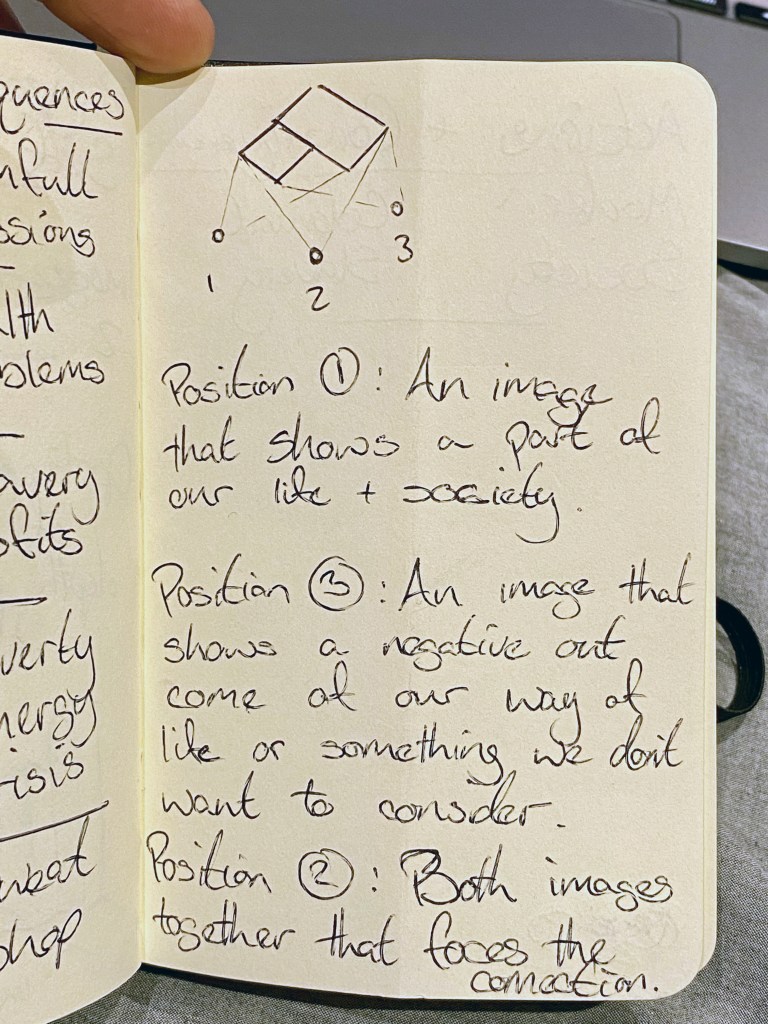 quences
nfall
ssions
lth
blems
avery
ofits
verty
nergy
isis
weat
shop
1
2
3
Position ①: An image
that shows a part of
our life + society.
Position ③: An image that
shows a negative out
come of our way of
life or something we don't
want to consider.
Position ②: Both images
together that faces the
connection.